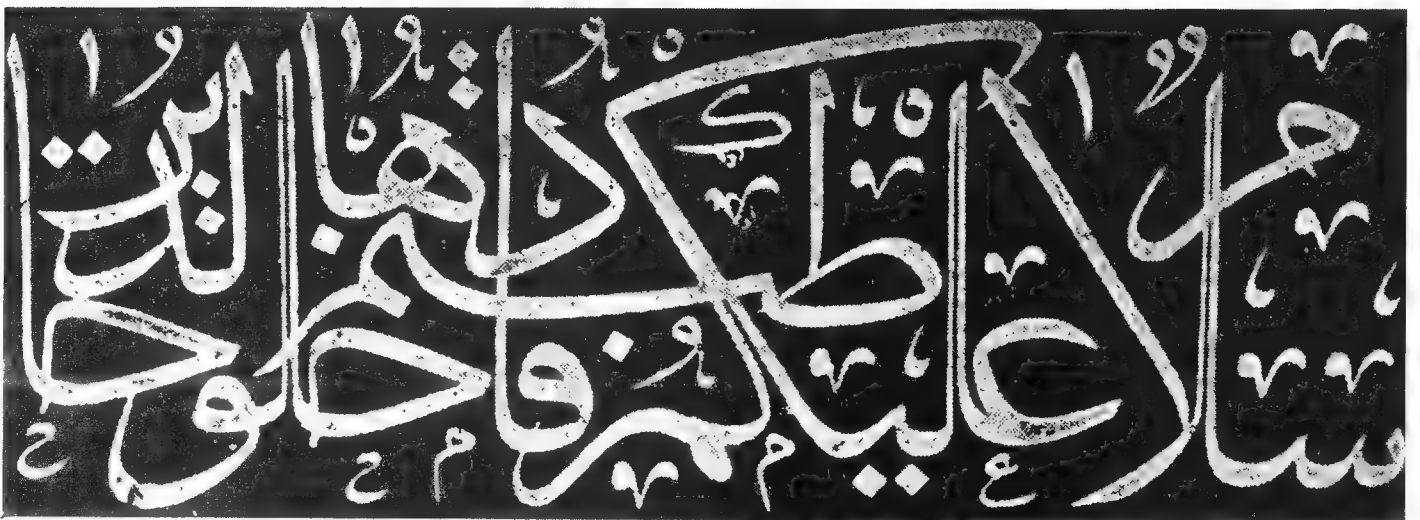 سلام عليكم طبتم فادخلوها خالدين